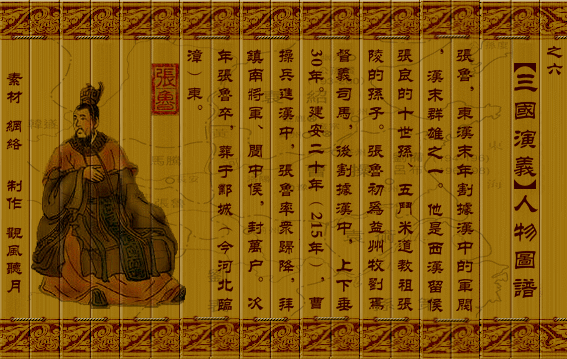 之六
【三國演義】人物圖譜
張魯，東漢末年割據漢中的軍閥
，漢末群雄之一。他是西漢留侯
張良的十世孫、五鬥米道教祖張
陵的孫子。張魯初爲益州牧劉焉
督義司馬，後割據漢中，上下垂
30年。建安二十年（215年），曹
操兵進漢中，張魯率衆歸降，拜
鎮南將軍、閬中侯，封萬户。次
年張魯卒，葬于鄴城（今河北臨
漳）東。
張魯
素材 網絡 制作 觀風聽月
馬騰
韓遂
袁紹